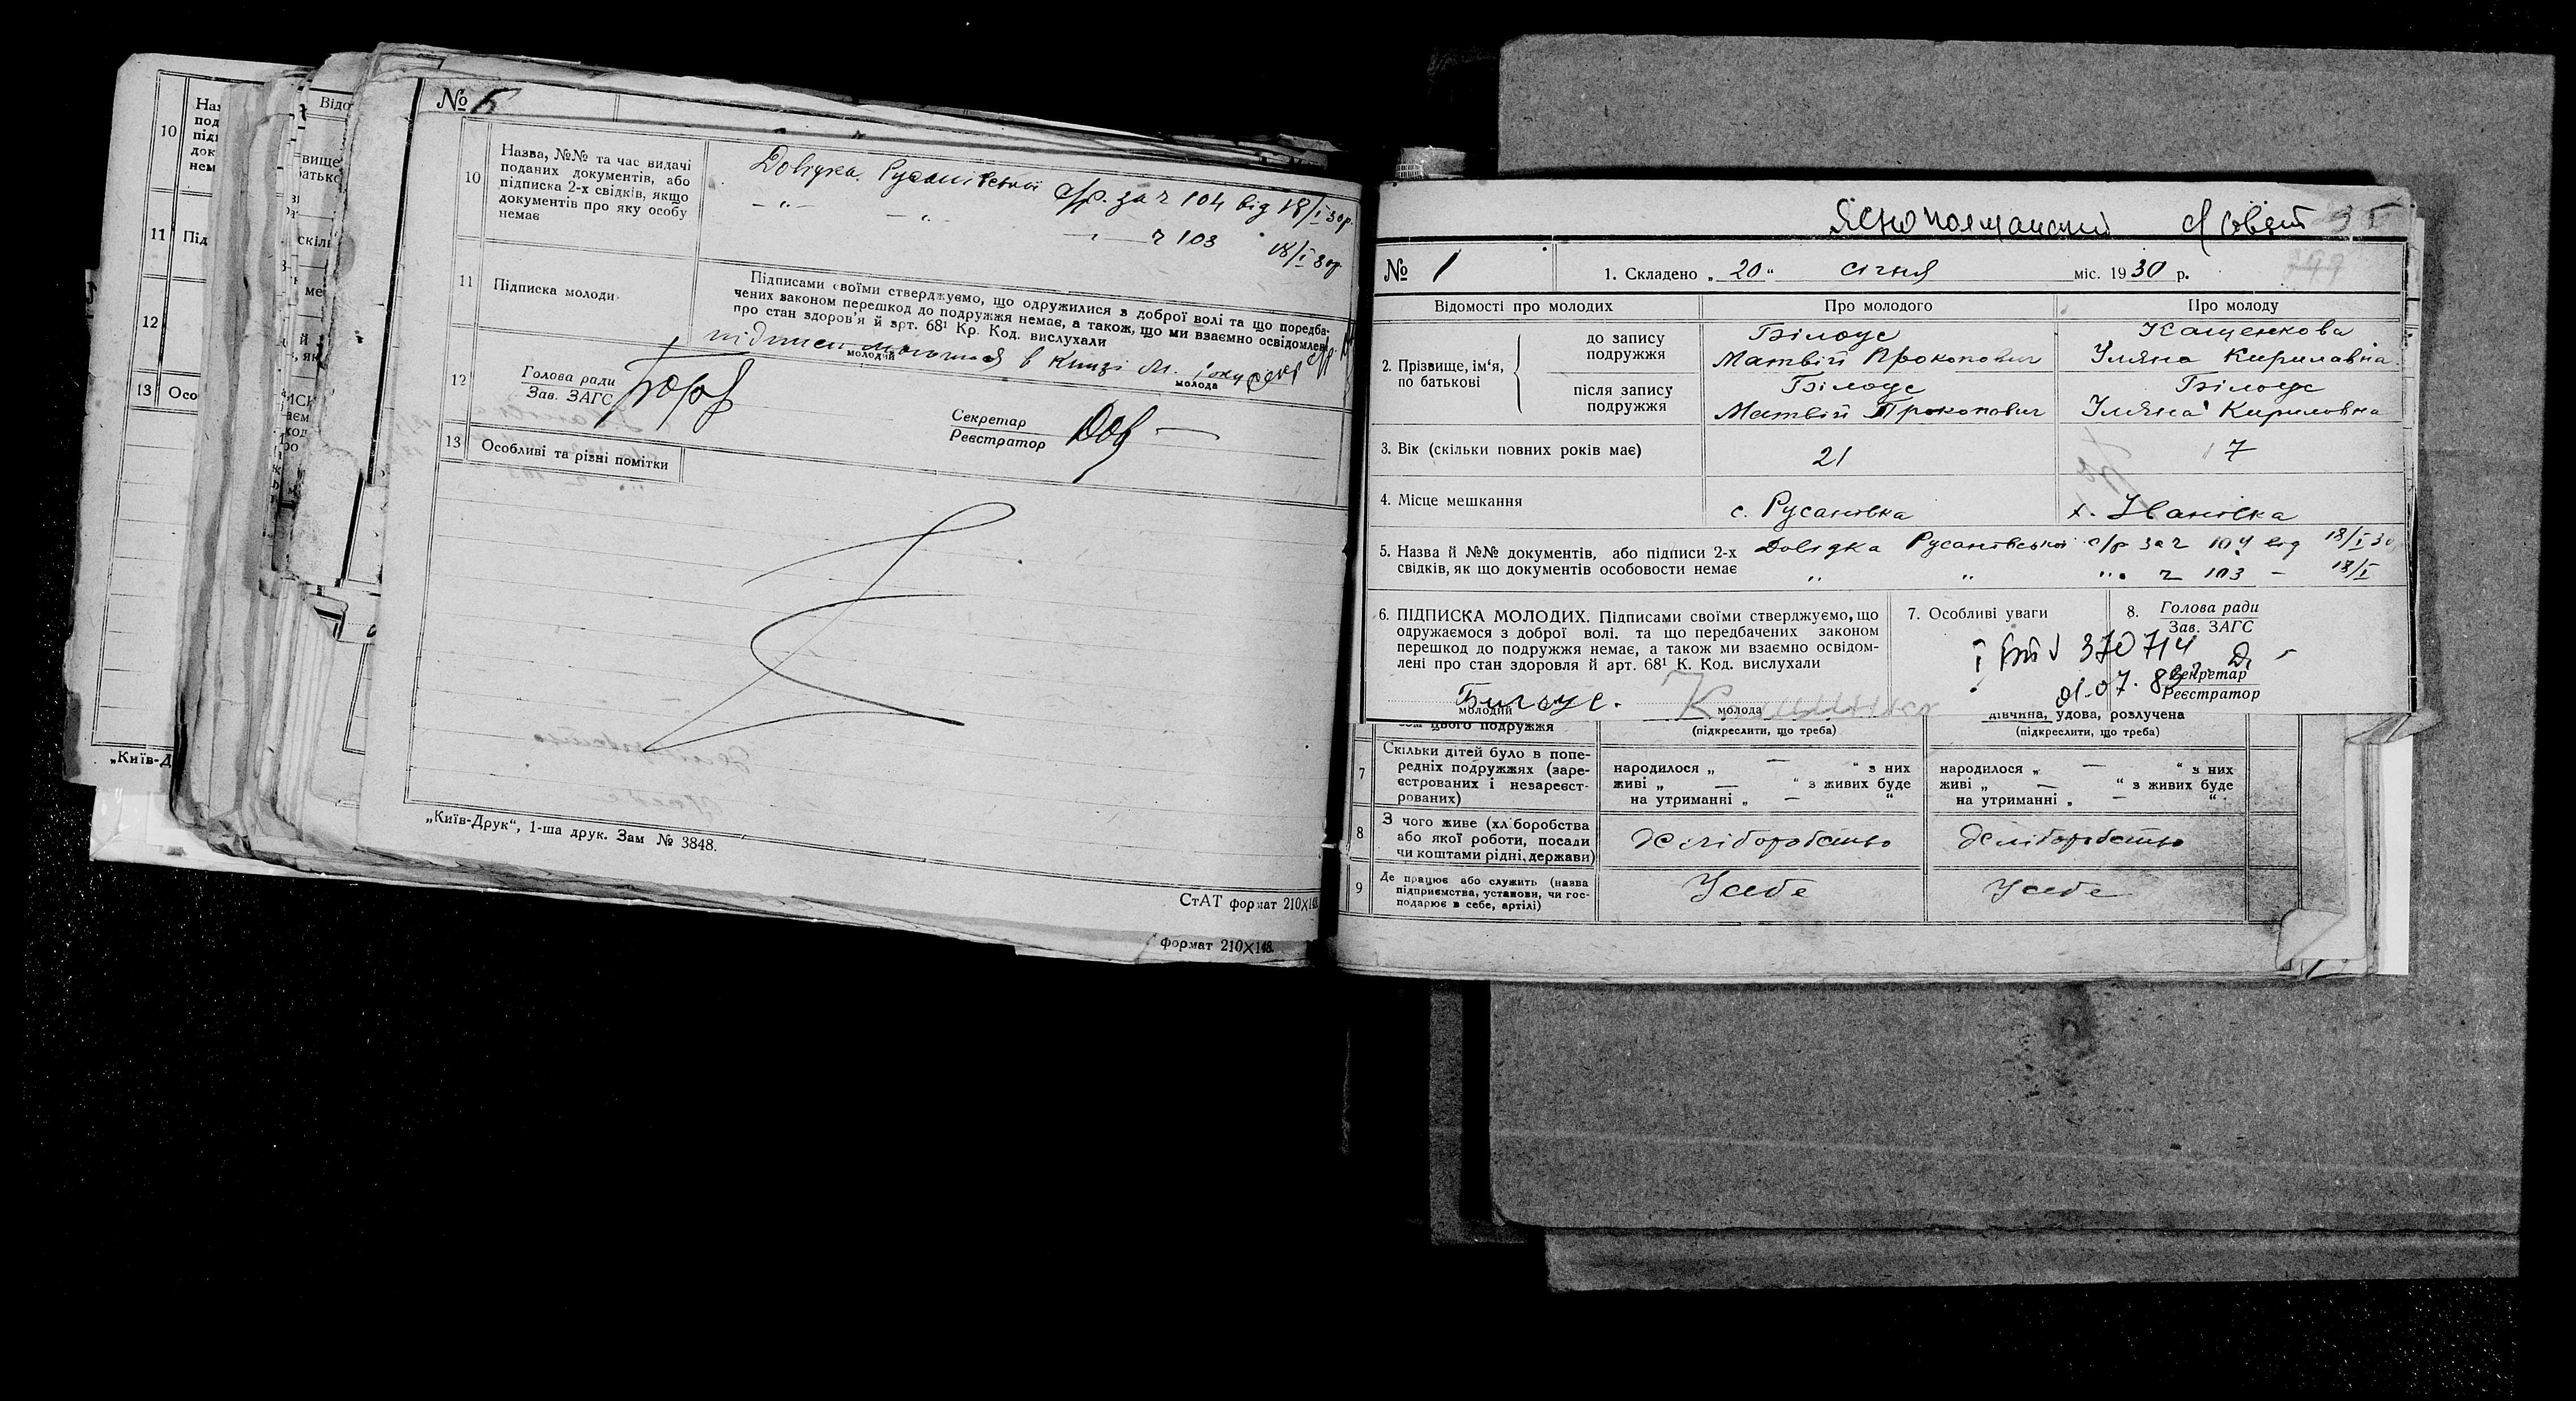 № 6
10 Назва, №№ та час видачі
поданих документів, або
підписка 2-х свідків, якщо
документів про яку особу
немає
Довідка Русанівської с/р. за ч 104 від 18/I 30р.
—„— —„— — ч 103 18/I 30р.
11 Підписка молоди
Підписами своїми стверджуємо, що одружилися з доброї волі та що передба-
чених законом перешкод до подружжя немає, а також, що ми взаємно освідомлені
про стан здоров'я й арт. 68¹ Кр. Код. вислухали
підписи в книзі
молодий молода
12 Голова ради
Зав. ЗАГС
Секретар
Реєстратор
13 Особливі та різні помітки
„Київ-Друк“, 1-ша друк. Зам № 3848.
СтАТ формат 210X148
формат 210X148.
10
11 Під
12
13 Осо
„Київ-Д
с/ совет
№ 1
1. Складено „ 20 “ січня міс. 1930 р.
299
Відомості про молодих Про молодого Про молоду
2. Прізвище, ім‘я,
по батькові
до запису
подружжя
Білоус
Матвій Прокопович
Кащенкова
Уляна Кирилавна
після запису
подружжя
Білоус
Матвій Прокопович
Білоус
Уляна Кириловна
3. Вік (скільки повних років має) 21 17
4. Місце мешкання с. Русановка х. Іванівка
5. Назва й №№ документів, або підписи 2-х
свідків, як що документів особовости немає
Довідка Русанівської с/р за ч 104 від 18/I 30
„ „ „ ч 103 – 18/I
6. ПІДПИСКА МОЛОДИХ. Підписами своїми стверджуємо, що
одружаємося з доброї волі. та що передбачених законом
перешкод до подружжя немає, а також ми взаємно освідом-
лені про стан здоровля й арт. 68¹ К. Код. вислухали
Билоус.
молодий молода
7. Особливі уваги
370714
01.07.83
8. Голова ради
Зав. ЗАГС
Секретар
Реєстратор
цього подружжя
(підкреслити, що треба)
дівчина, удова, розлучена
(підкреслити, що треба)
7 Скільки дітей було в попе-
редніх подружжях (заре-
єстрованих і незареєст-
рованих)
народилося „ — “ з них
живі „ — “ з живих буде
на утриманні „ — “
народилося „ — “ з них
живі „ — “ з живих буде
на утриманні „ — “
8 З чого живе (хліборобства
або якої роботи, посади
чи коштами рідні, держави)
Хліборобство Хліборобство
9 Де працює або служить (назва
підприємства, установи, чи гос-
подарює в себе, артілі)
У себе У себе